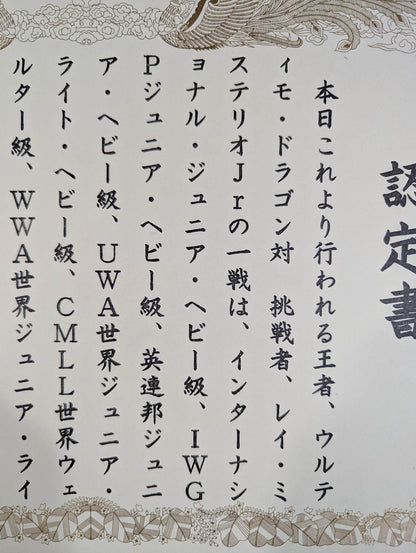 認定書
本日これより行われる王者、ウルテ
ィモ・ドラゴン対　挑戦者、レイ・ミ
ステリオJrの一戦は、インターナシ
ョナル・ジュニア・ヘビー級、IWG
Pジュニア・ヘビー級、英連邦ジュニ
ア・ヘビー級、UWA世界ジュニア・
ライト・ヘビー級、CMLL世界ウェ
ルター級、WWA世界ジュニア・ライ